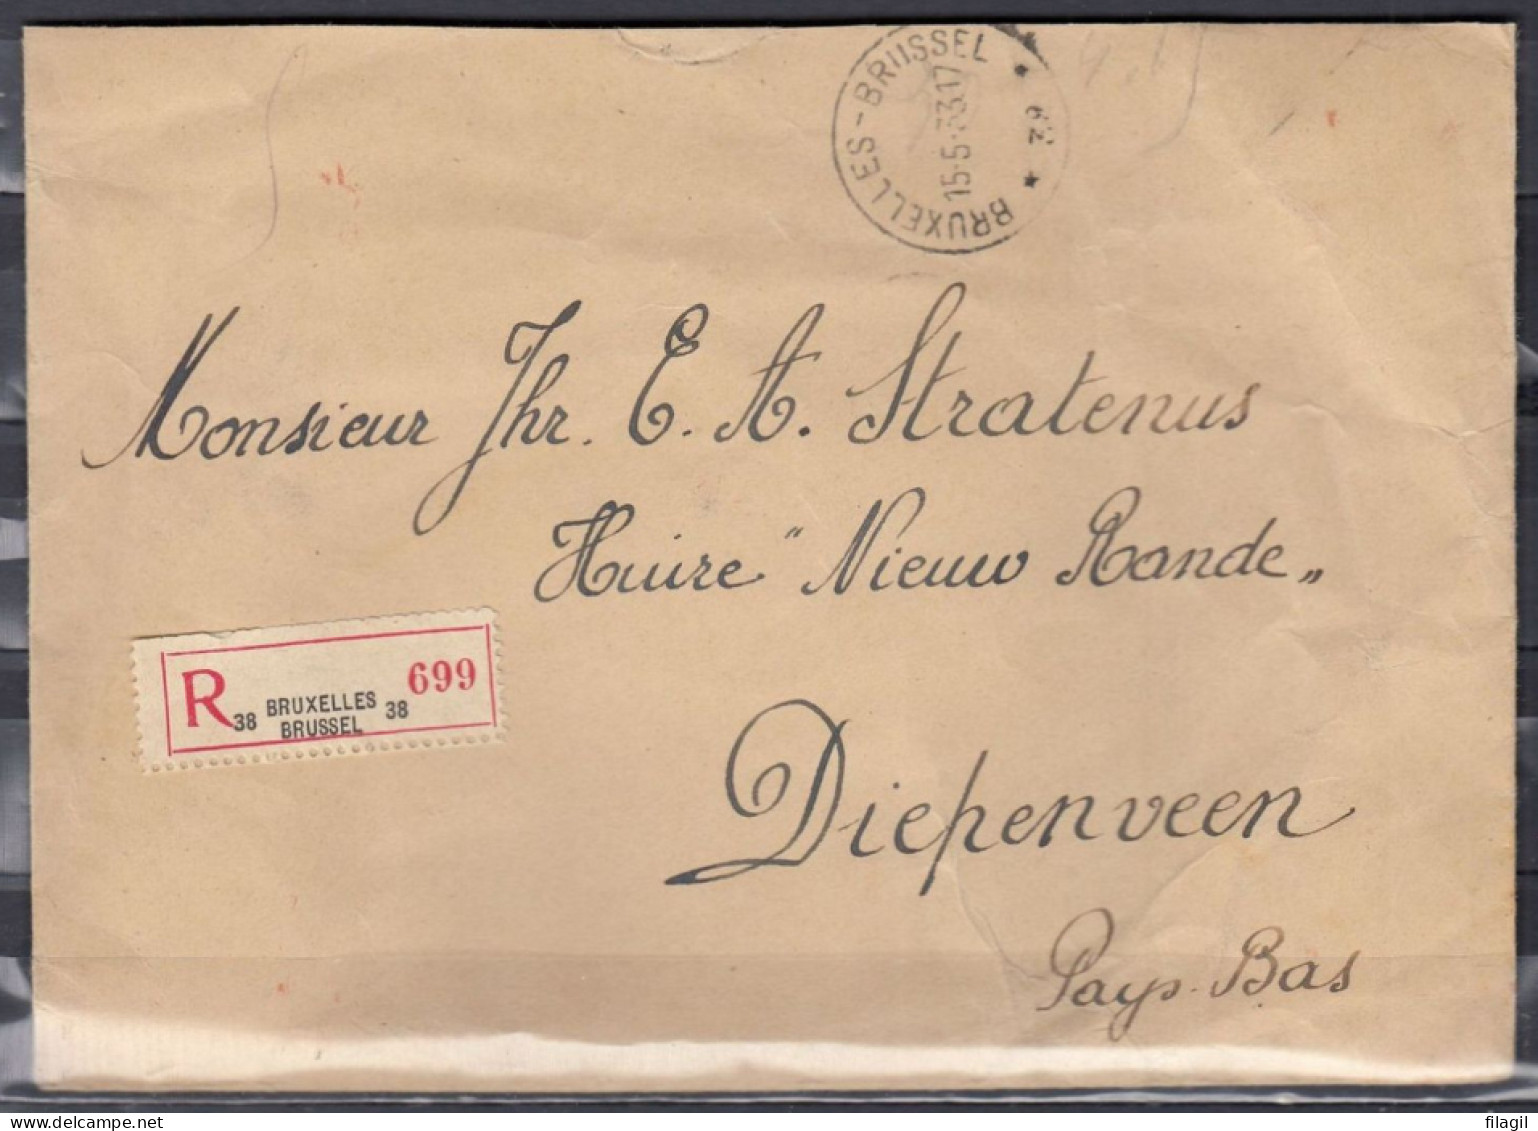 BRUXELLES - BRUSSEL
15-5-33.17
BRUXELLES
Monsieur Jhr. E. A. Stratenus
Huize "Nieuw Rande„
R 699
38 BRUXELLES 38
BRUSSEL
Diepenveen
Pays-Bas
filagil